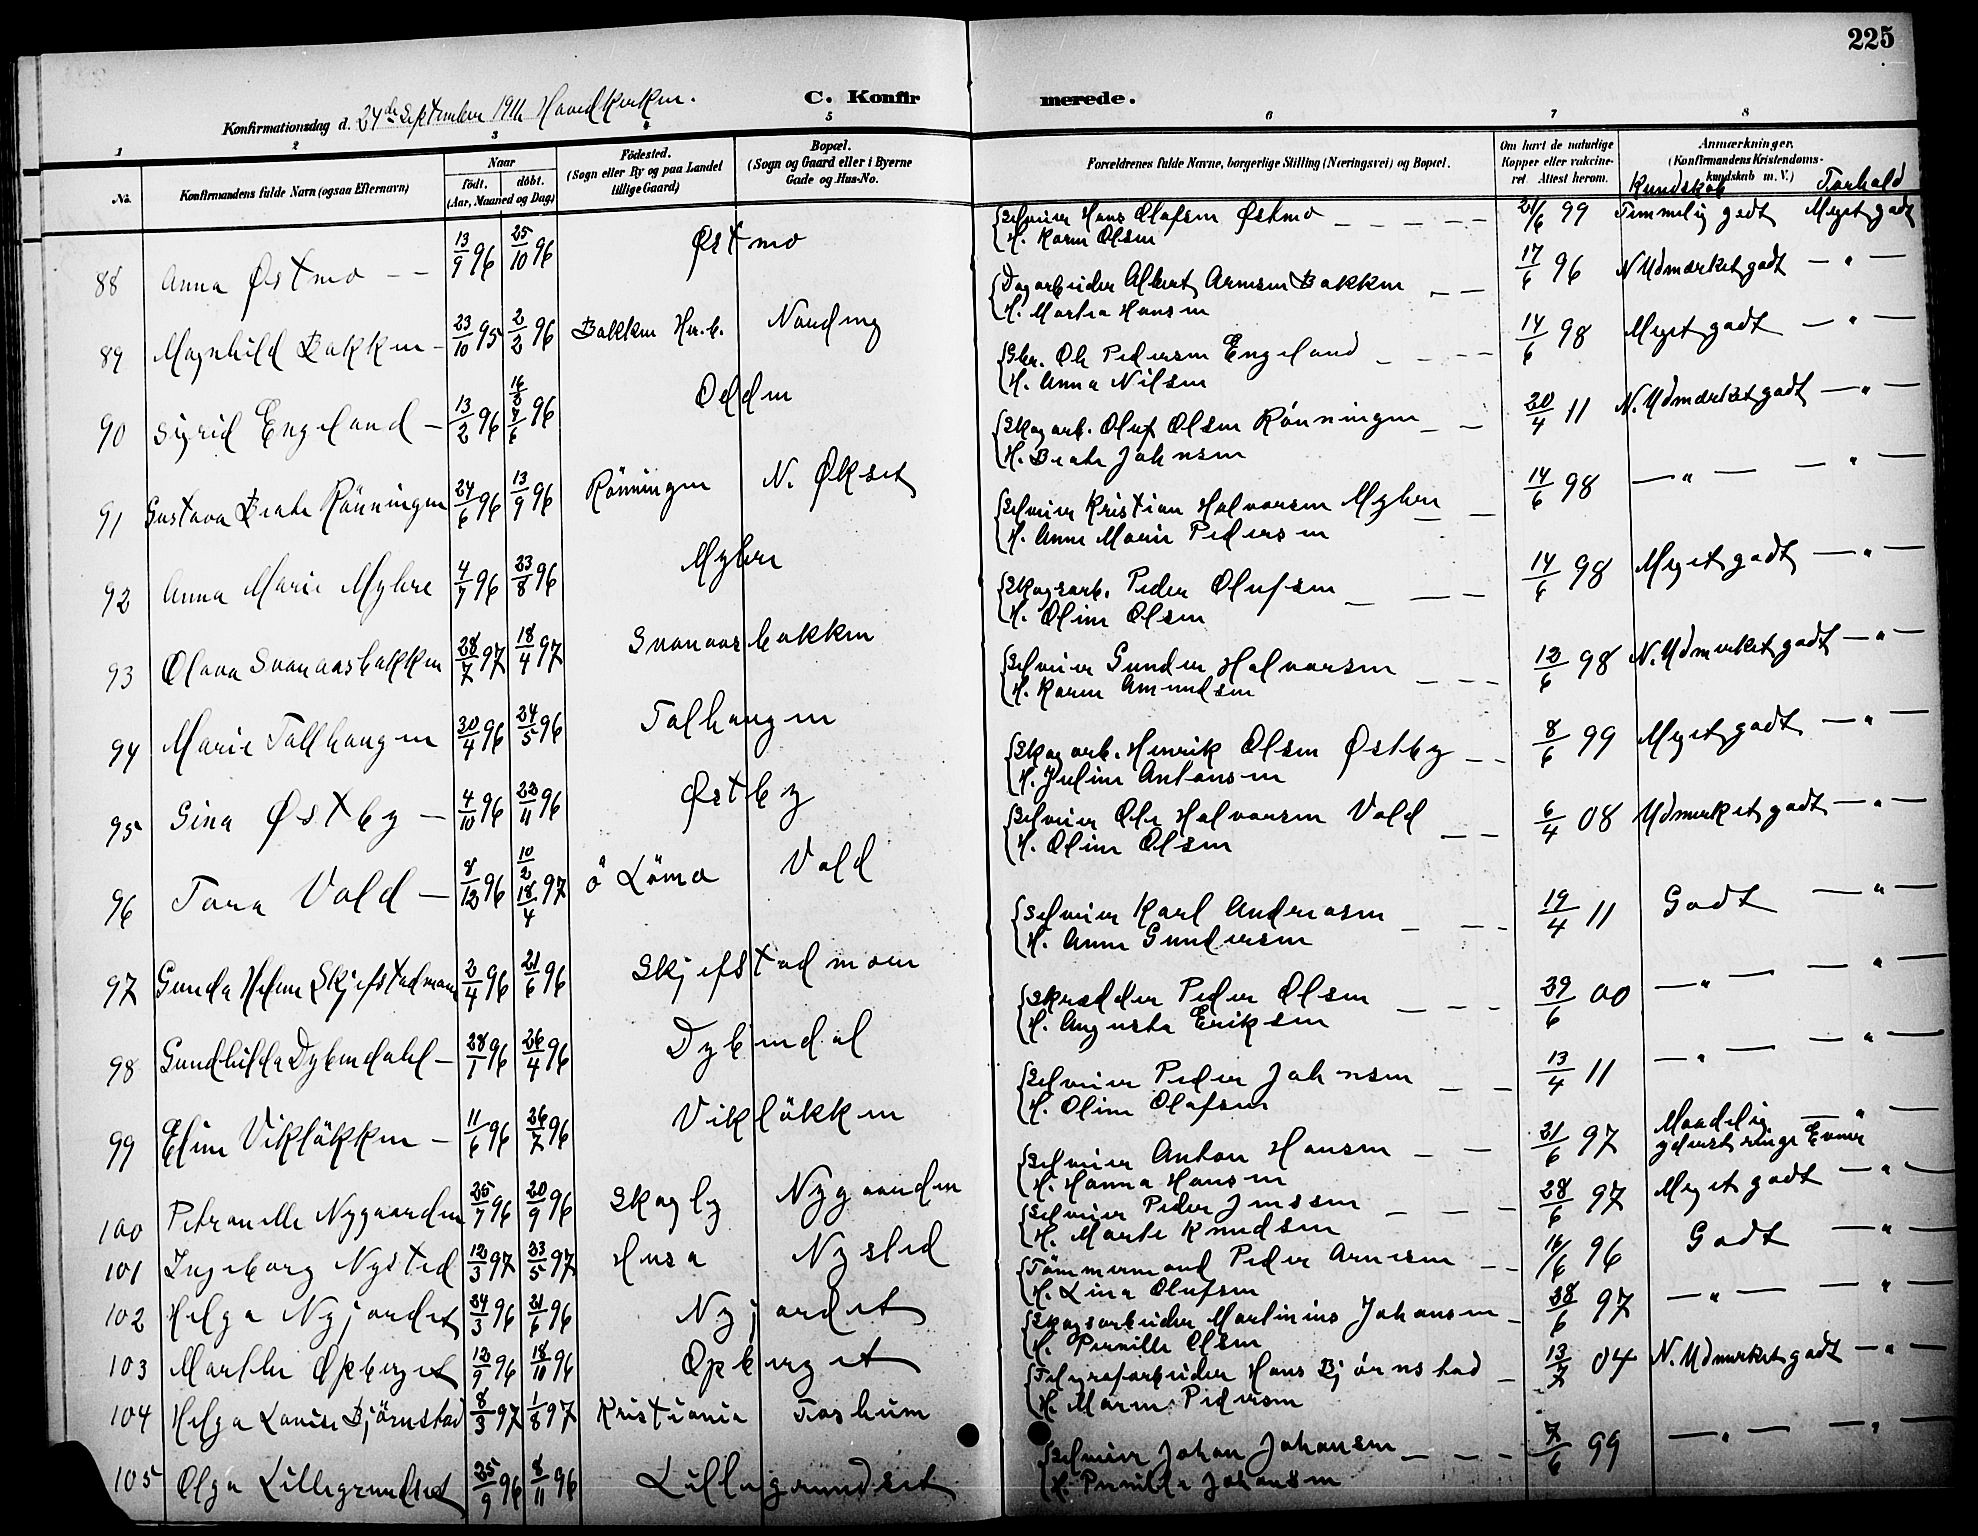 225
C. Konfirmerede.
Konfirmationsdag d. 24de September 1911 Hovedkirken.
1 2 3 4 5 6 7 8
No.
Konfirmandens fulde Navn (ogsaa Efternavn)
Naar
født. døbt.
(Aar, Maaned og Dag)
Fødested.
(Sogn eller By og paa Landet
tillige Gaard)
Bopæl.
(Sogn og Gaard eller i Byerne
Gade og Hus-No.
Forældrenes fulde Navne, borgerlige Stilling (Næringsvei) og Bopæl.
Om havt de naturlige
Kopper eller vakcine-
ret. Attest herom.
Anmærkninger.
(Konfirmandens Kristendoms-
kundskab m. V.)
Kundskab Forhold
88 Anna Østmo -- 13/9 96 25/10 96 Østmo Selveier Hans Olafsen Østmo 21/6 99 Temmelig godt Meget godt
H. Karen Olsen
89 Magnhild Bakken 23/10 95 2/2 96 Bakken Her.b. Nording Dagarbeider Albert Arnesen Bakken 17/6 96 N Udmærket godt — " —
H. Martea Hansen
90 Sigrid Engeland 13/2 96 16/3 7/6 96 Odden Gbr. Ole Pedersen Engeland 14/6 98 Meget godt — " —
H. Anna Nilsen
91 Gustava Beate Rönningen 24/6 96 13/9 96 Rönningen N. Økset Skogarb. Oluf Olsen Rönningen 20/4 11 N. Udmærket godt — " —
H. Beate Johnsen
92 Anna Marie Myhre 4/7 96 23/8 96 Myhre Selveier Kristian Halvorsen Myhre 14/6 98 — " — — " —
H. Anne Marie Pedersen
93 Olava Svenaasbakken 28/7 97 18/4 97 Svenaasbakken Skogsarb. Peder Olufsen 14/6 98 Meget godt — " —
H. Oline Olsen
94 Marie Tallhaugen 30/4 96 24/5 96 Talhaugen Selveier Gunder Halvorsen 12/6 98 N. Udmerket godt — " —
H. Karen Amundsen
95 Gina Østby 4/10 96 22/11 96 Østby Skogarb. Henrik Olsen Østby 8/6 99 Meget godt — " —
H. Juline Antonsen
96 Tora Vold 8/12 96 10/2 18/4 97 Ö Löma Vold Selveier Ole Halvorsen Vold 6/4 08 Udmerket godt — " —
H. Oline Olsen
97 Gunda Helene Skjefstadmoen 2/4 96 21/6 96 Skjefstadmoen Selveier Karl Andreasen 19/4 11 Godt — " —
H. Anne Gundersen
98 Gundhilda Dybendahl 28/1 96 26/4 96 Dybendal Skrædder Peder Olsen 29/6 00 — " — — " —
H. Augusta Eriksen
99 Eline Viklökken 11/6 96 26/7 96 Viklökken Selveier Peder Johnsen 13/4 11 — " — — " —
H. Oline Olafsen
100 Petronelle Nygaarden 25/7 96 20/9 96 Skogly Nygaarden Selveier Anton Hansen 21/6 97 Maadelig — " —
H. Hanna Hansen yderst ringe Evner
101 Ingeborg Nysted 12/3 97 23/5 97 Husa Nysted Selveier Peder Jenssen 28/6 97 Meget godt — " —
H. Marte Knudsen
102 Helga Nyjordet 24/3 96 21/6 96 Nyjordet Tømmermand Peder Arnesen 16/6 96 Godt — " —
H. Lina Olufsen
103 Marthe Opberget 12/9 96 18/10 96 Opberget Skogsarbeider Martinius Johansen 28/6 97 — " — — " —
H. Pernille Olsen
104 Helga Louise Björnstad 8/3 97 1/8 97 Kristiania Telegrafarbeider Hans Bjørnstad 13/7 04 N. Udmerket godt — " —
H. Maren Pedersen
105 Olga Lillegrundset 25/9 96 8/11 96 Lillegrundset Selveier Johan Johansen 7/6 99 — " — — " —
H. Pernille Johansen